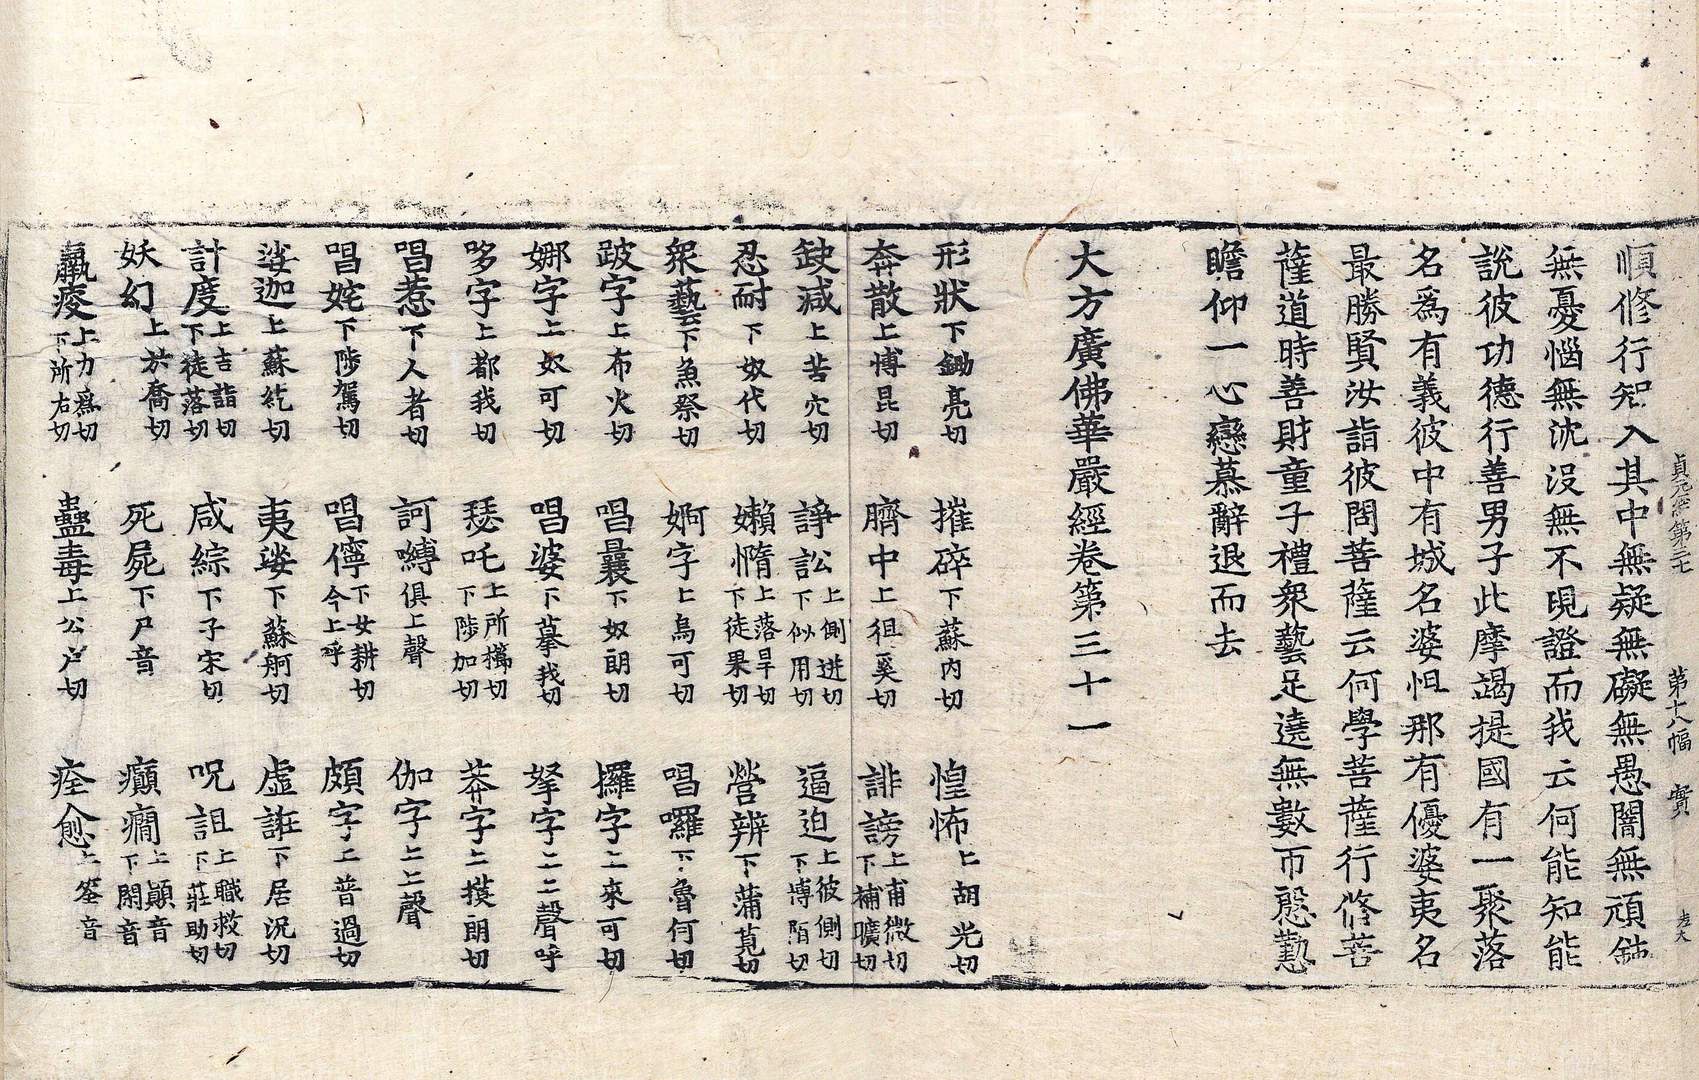 貞元經第三十七 第十八幅 實
順修行智入其中無疑無礙無愚闇無頑鈍
無憂惱無沈沒無不現證而我云何能知能
說彼功德行善男子此摩竭提國有一聚落
名爲有義彼中有城名婆怛那有優婆夷名
最勝賢汝詣彼問菩薩云何學菩薩行修菩
薩道時善財童子禮衆藝足遶無數帀慇懃
瞻仰一心戀慕辭退而去
大方廣佛華嚴經卷第三十一
形狀下鋤亮切 摧碎下蘇內切 惶怖上胡光切
奔散上博昆切 臍中上徂奚切 誹謗上甫微切下補曠切
缺減上苦穴切 諍訟上側迸切下似用切 逼迫上彼側切下博陌切
忍耐下奴代切 嬾惰上落旱切下徒果切 營辨下蒲莧切
衆藝下魚祭切 婀字上烏可切 唱囉下魯何切
跛字上布火切 唱曩下奴朗切 攞字上來可切
娜字上奴可切 唱婆下摹我切 拏字上上聲呼
哆字上都我切 瑟吒上所櫛切下陟加切 莽字上摸朗切
唱惹下人者切 訶嚩俱上聲 伽字上上聲
唱姹下陟駕切 唱儜下女耕切今上呼 頗字上普過切
娑迦上蘇紇切 夷娑下蘇舸切 虛誑下居況切
計度上吉詣切下徒落切 咸綜下子宋切 呪詛上職救切下莊助切
妖幻上於喬切 死屍下尸音 癲癇上顛音下閑音
羸瘦上力爲切下所右切 蠱毒上公戶切 痊愈上筌音